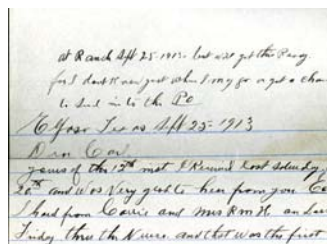 at Ranch Sept 25-1913- but will get this away
for I dont know just when I may go or get a chance
to send in to the PO
El Paso Texas Sept 25-1913
Dear Carl
yours of the 15th inst I Received last Saturday
20th and was very glad to hear from you
I had from Carrie and Mrs R M H
Friday thru the Nurse and that was the first